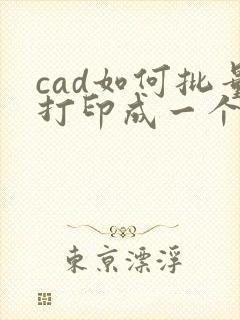 cad如何批量
打印成一个
東京漂浮